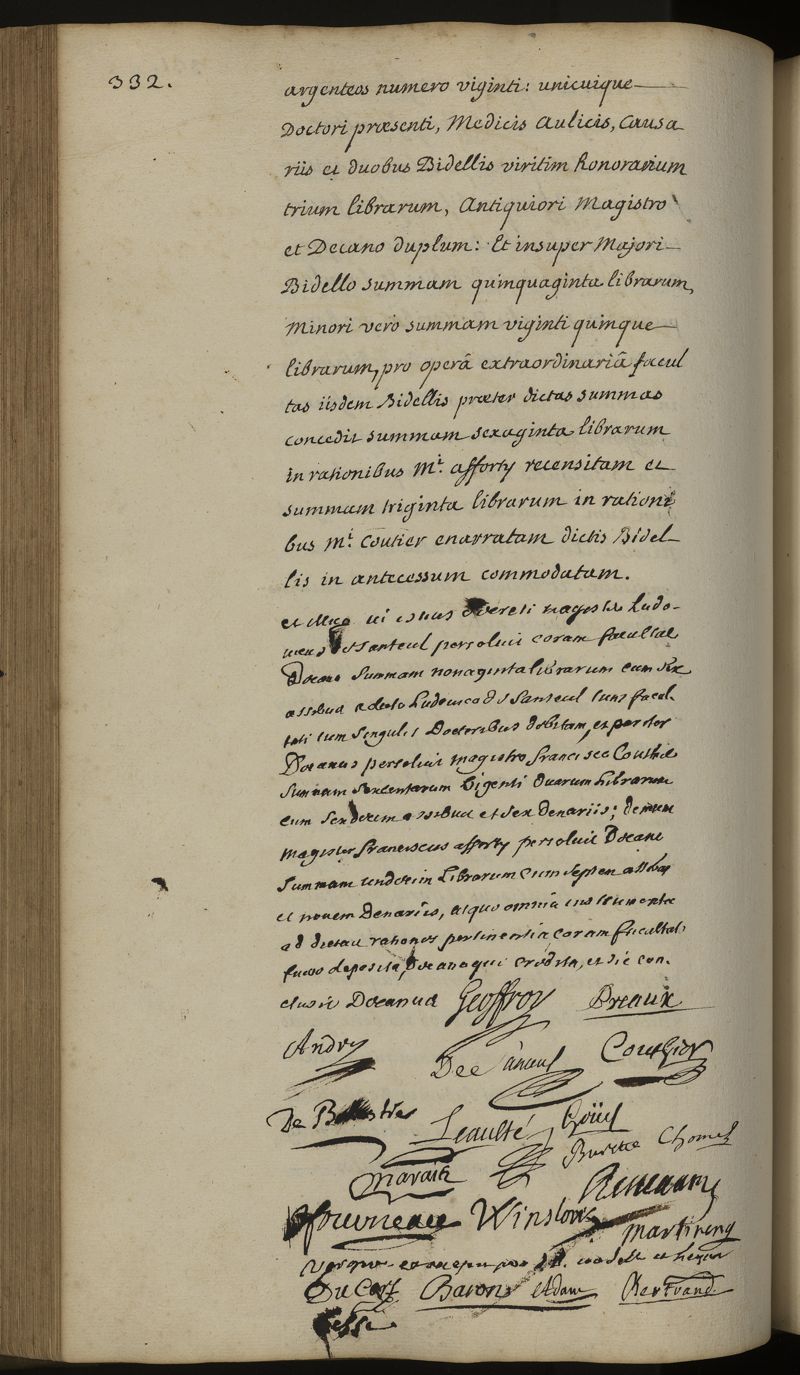 332.
argenteos numero viginti: unicuique
Doctori præsenti, Medicis Aulicis, Causa
riis et duobus Bidellis viritim honorarium
trium librarum, Antiquiori Magistro
et Decano duplum: Et insuper Majori
Bidello summam quinquaginta librarum,
Minori vero summam viginti quinque
librarum, pro operâ extraordinariâ facul
tas iisdem Bidellis præter dictas summas
concedit summam sexaginta librarum
in rationibus Mi. afforty recensitam et
summam triginta librarum in rationi
bus Mi. Coutier enarratam dictis Bidel
lis in antecessum commodatam.
et vi decreti magister Ludo-
vicus Santeul persolvit coram facultate
Decano summam nonaginta librarum cum sex
assibus a dicto Ludovico de Santeul tum facul
tati tum singulis Doctoribus debitam, et pariter
Decanus persolvit magistro francisco Couthier
summam sexcentarum viginti duarum librarum
cum sexdecim assibus et sex denariis; demum
magister franciscus afforty persolvit Decano
summam undecim librarum cum septem assibus
et novem denariis, atque omnia instrumenta
ad dictas rationes pertinentia coram facultate
fuere deposita, Decanoque credita, et sic con-
clusit Decanus Geoffroy Preaux
Andry Couthier
De
Leaulté
Burette Chomel
Reneaume
Winslow
Martinenq
Baron Adam Bertrand